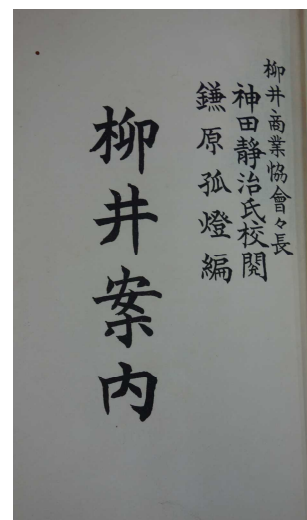 柳井商業協會々長
神田靜治氏校閱
鎌原孤燈編
柳井案内